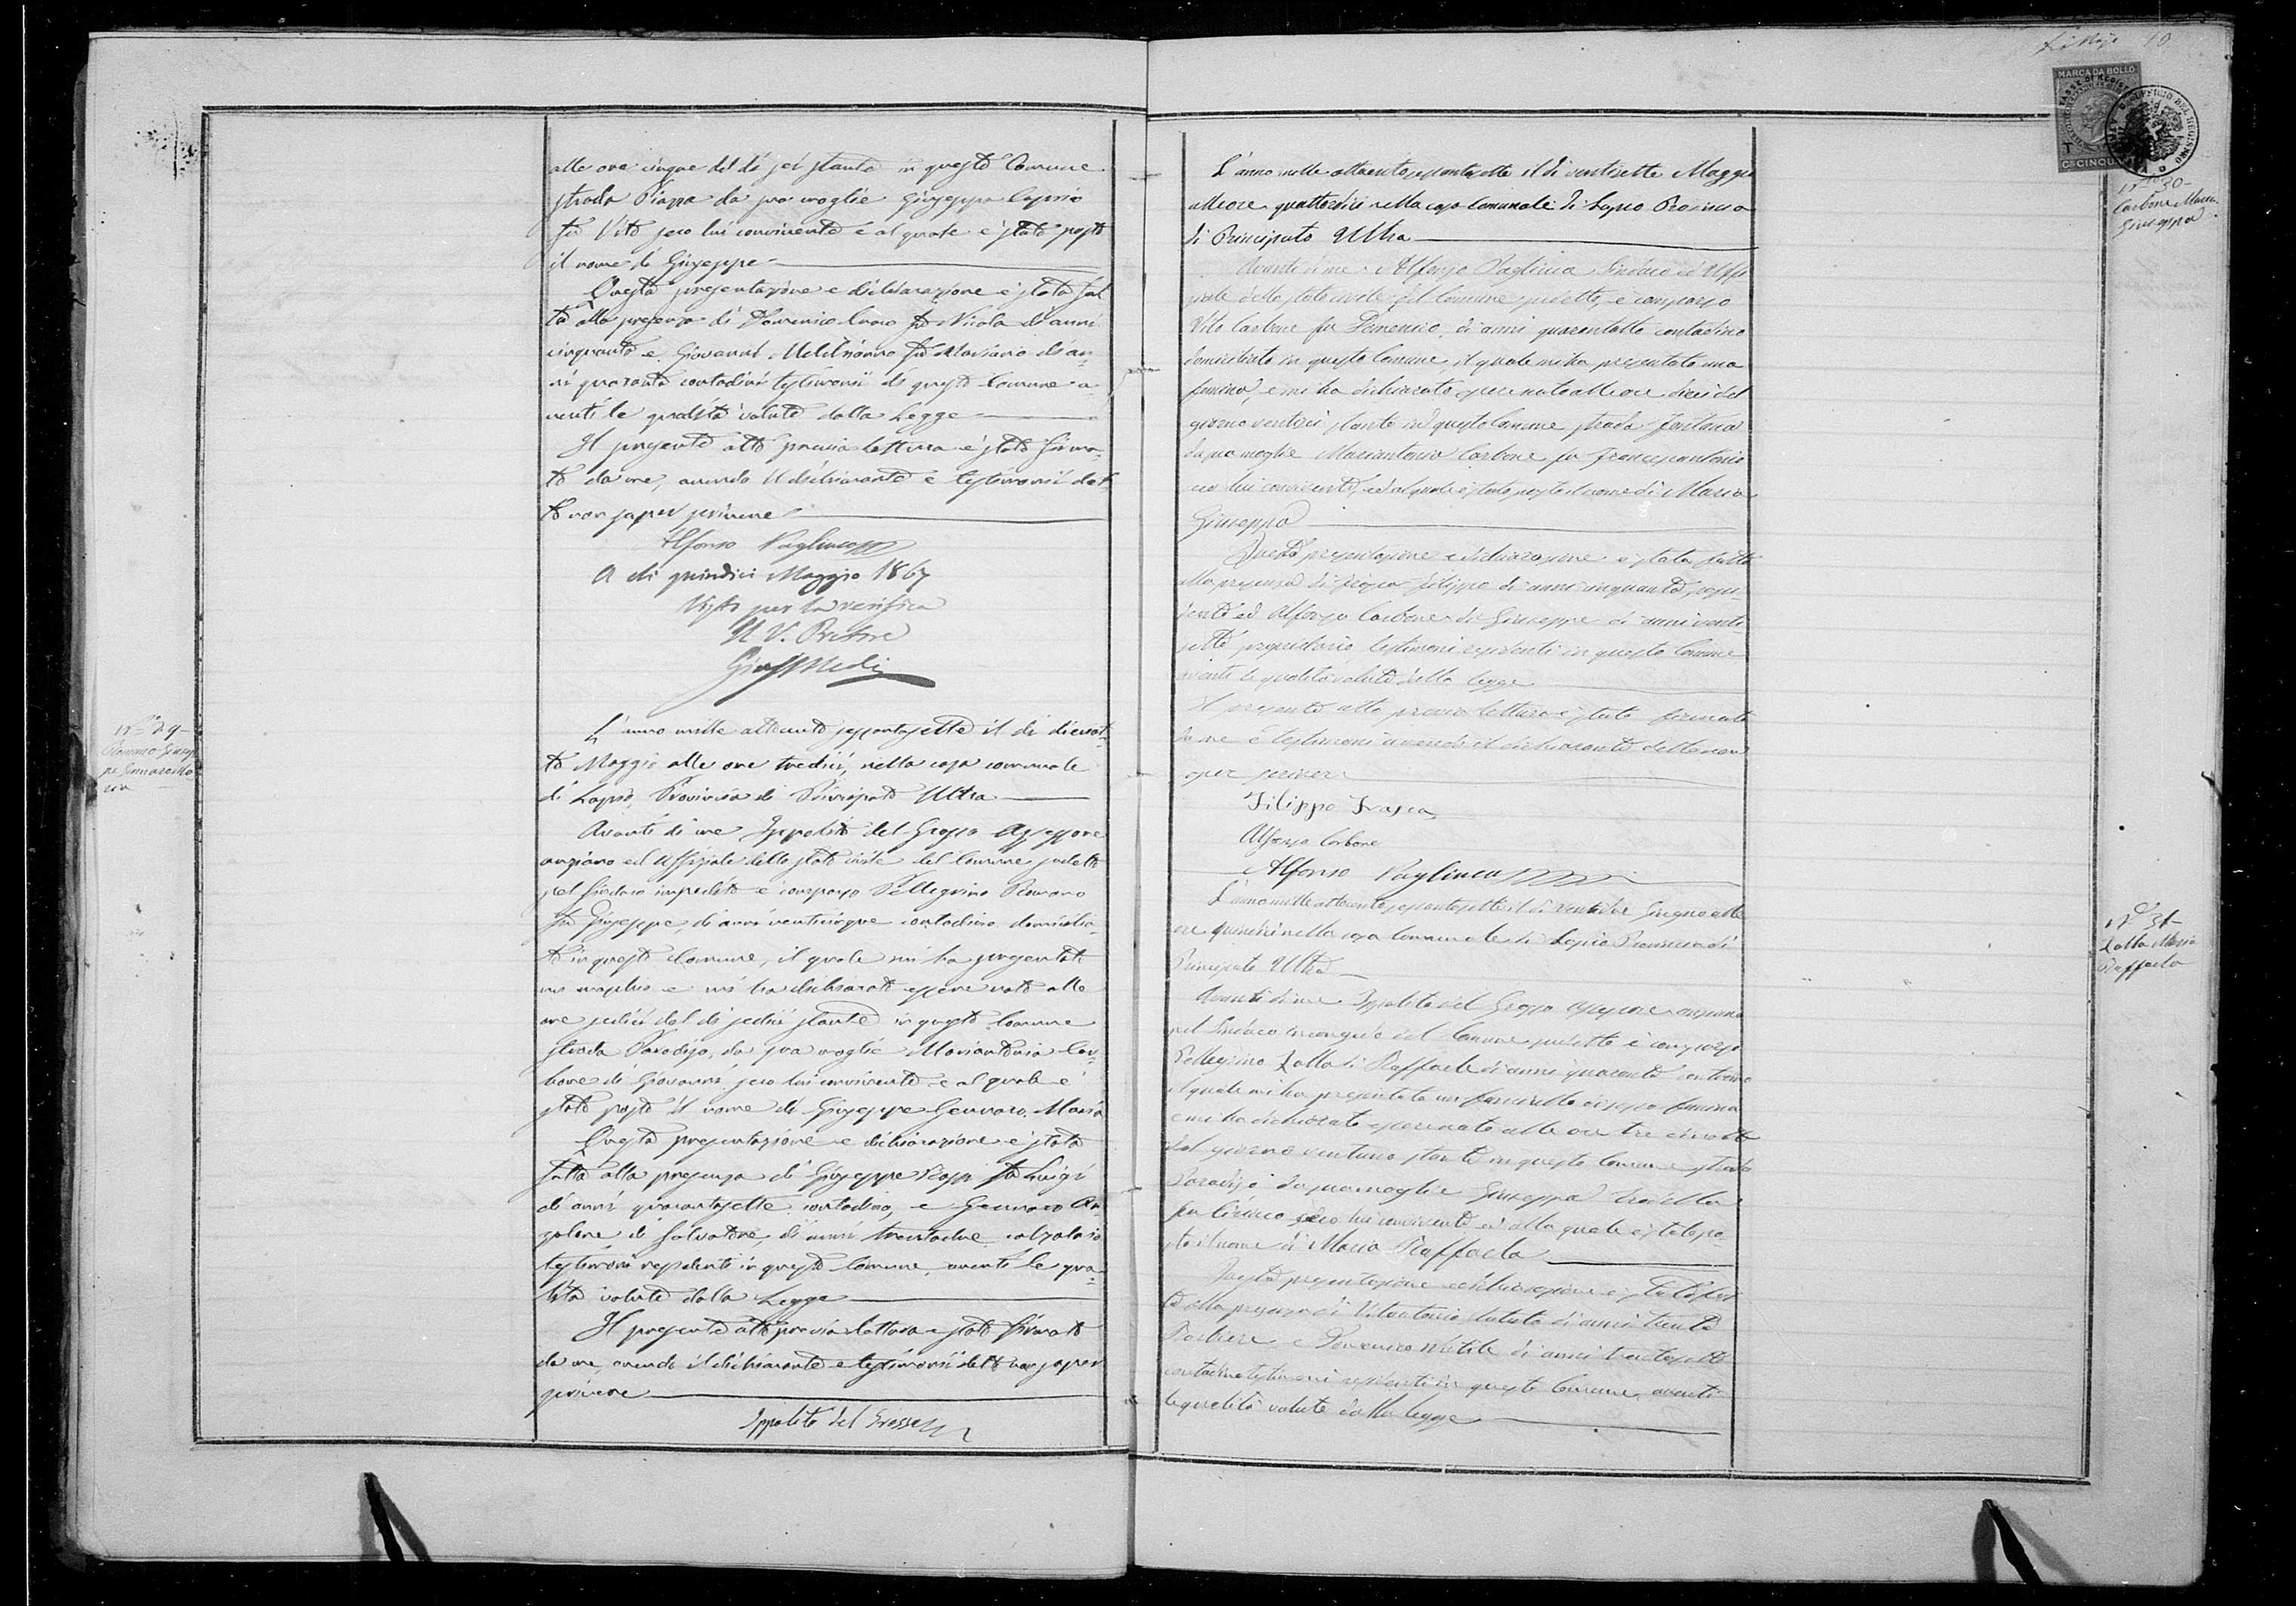 alle ore cinque del dì sei stante in questo Comune
strada Piazza da sua moglie Giuseppa Caprio
fu Vito seco lui convivente e al quale è stato posto
il nome di Giuseppe
Questa presentazione e dichiarazione è stata fat
ta alla presenza di Domenico fu Nicola di anni
cinquanta e Giovanni fu Mariano di an
ni quaranta contadini testimonii di questo Comune a
venti le qualità volute dalla Legge
Il presente atto previa lettura è stato firma
to da me, avendo il dichiarante e testimonii det
to non saper scrivere
Alfonso Pagliuca
A di quindici Maggio 1867
Visto per la verifica
Il V. Pretore
No 29
Giusep
pe Gennaro Ma
ria
L'anno mille ottocento sessantasette il dì diciot
to Maggio alle ore tredici, nella casa comunale
di Lapio, Provincia di Principato Ultra
Avanti di me Ippolito del Grosso Assessore
anziano ed Uffiziale dello stato civile del Comune sudetto
pel Sindaco impedito è comparso Pellegrino
fu Giuseppe, di anni venticinque contadino domicilia
to in questo Comune, il quale mi ha presentato
un maschio e mi ha dichiarato essere nato alle
ore sedici del dì sedici stante in questo Comune
strada Paradiso, da sua moglie Mariantonia Car
bone di Giovanni seco lui convivente e al quale è
stato posto il nome di Giuseppe Gennaro Maria
Questa presentazione e dichiarazione è stata
fatta alla presenza di Giuseppe fu Luigi
di anni quarantasette contadino, e Gennaro An
zalone di Salvatore, di anni trentadue calzolaio
testimoni residenti in questo Comune, aventi le qua
lità volute dalla Legge
Il presente atto previa lettura è stato firmato
da me, avendo il dichiarante e testimonii detto non saper
scrivere
Ippolito del Grosso
10
MARCA DA BOLLO
CS CINQUA
No 30
Carbone Maria
Giuseppa
L'anno mille ottocento sessantasette il dì ventisette Maggio
alle ore quattordici nella casa Comunale di Lapio Provincia
di Principato Ultra
Avanti di me Alfonso Pagliuca Sindaco ed Uffi
ziale dello stato civile del Comune sudetto, è comparso
Vito Carbone fu Domenico, di anni quarantotto contadino
domiciliato in questo Comune, il quale mi ha presentato una
femina, e mi ha dichiarato essere nata alle ore dieci del
giorno ventisei stante in questo Comune strada Fontana
da sua moglie Mariantonia Carbone fu Francescantonio
seco lui convivente, ed al quale è stato posto il nome di Maria
Giuseppa
Questa presentazione e dichiarazione è stata fatta
alla presenza di Frasca Filippo di anni cinquanta, possi
dente ed Alfonso Carbone di Giuseppe di anni venti
sette proprietario testimoni residenti in questo Comune
aventi le qualità volute dalla legge
Il presente atto previa lettura è stato firmato
da me e testimoni avendo il dichiarante detto non
saper scrivere
Filippo Frasca
Alfonso Carbone
Alfonso Pagliuca
No 31
Zolla Maria
Raffaela
L'anno mille ottocento sessantasette il dì ventidue Giugno alle
ore quindici nella casa Comunale di Lapio Provincia di
Principato Ultra
Avanti di me Ippolito del Grosso Assessore anziano
pel Sindaco in congedo del Comune sudetto è comparso
Pellegrino Zolla di Raffaele di anni quaranta
il quale mi ha presentato un fanciullo di sesso femina
e mi ha dichiarato essere nata alle ore tre di notte
del giorno ventuno stante in questo Comune strada
Paradiso da sua moglie Giuseppa
fu Ciriaco seco lui convivente ed alla quale è stato po
sto il nome di Maria Raffaela
Questa presentazione e dichiarazione è stata fat
ta alla presenza di Vitantonio di anni trenta
Barbiere e Domenico di anni trentasette
contadino testimoni residenti in questo Comune, aventi
le qualità volute dalla legge